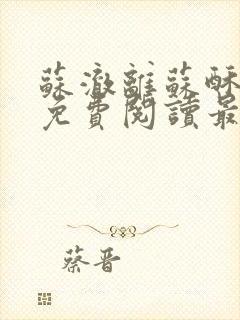 蘇澈離蘇酥
免費閱讀最
蔡晋